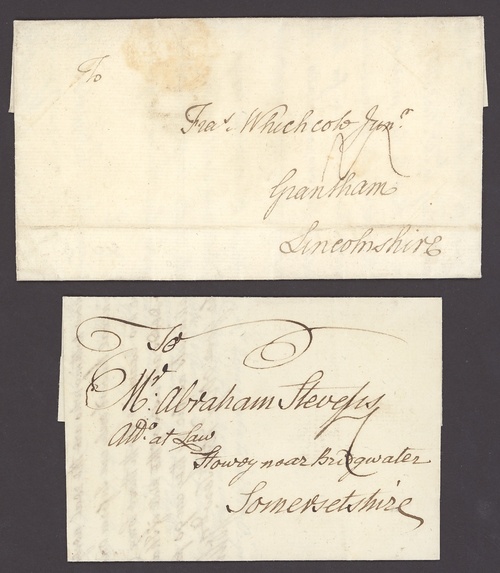 To
Fras. Whichcote Junr.
Grantham
Lincolnshire
To
Mr. Abraham Stevens
Att. at Law
Stowey near Bridgwater
Somersetshire